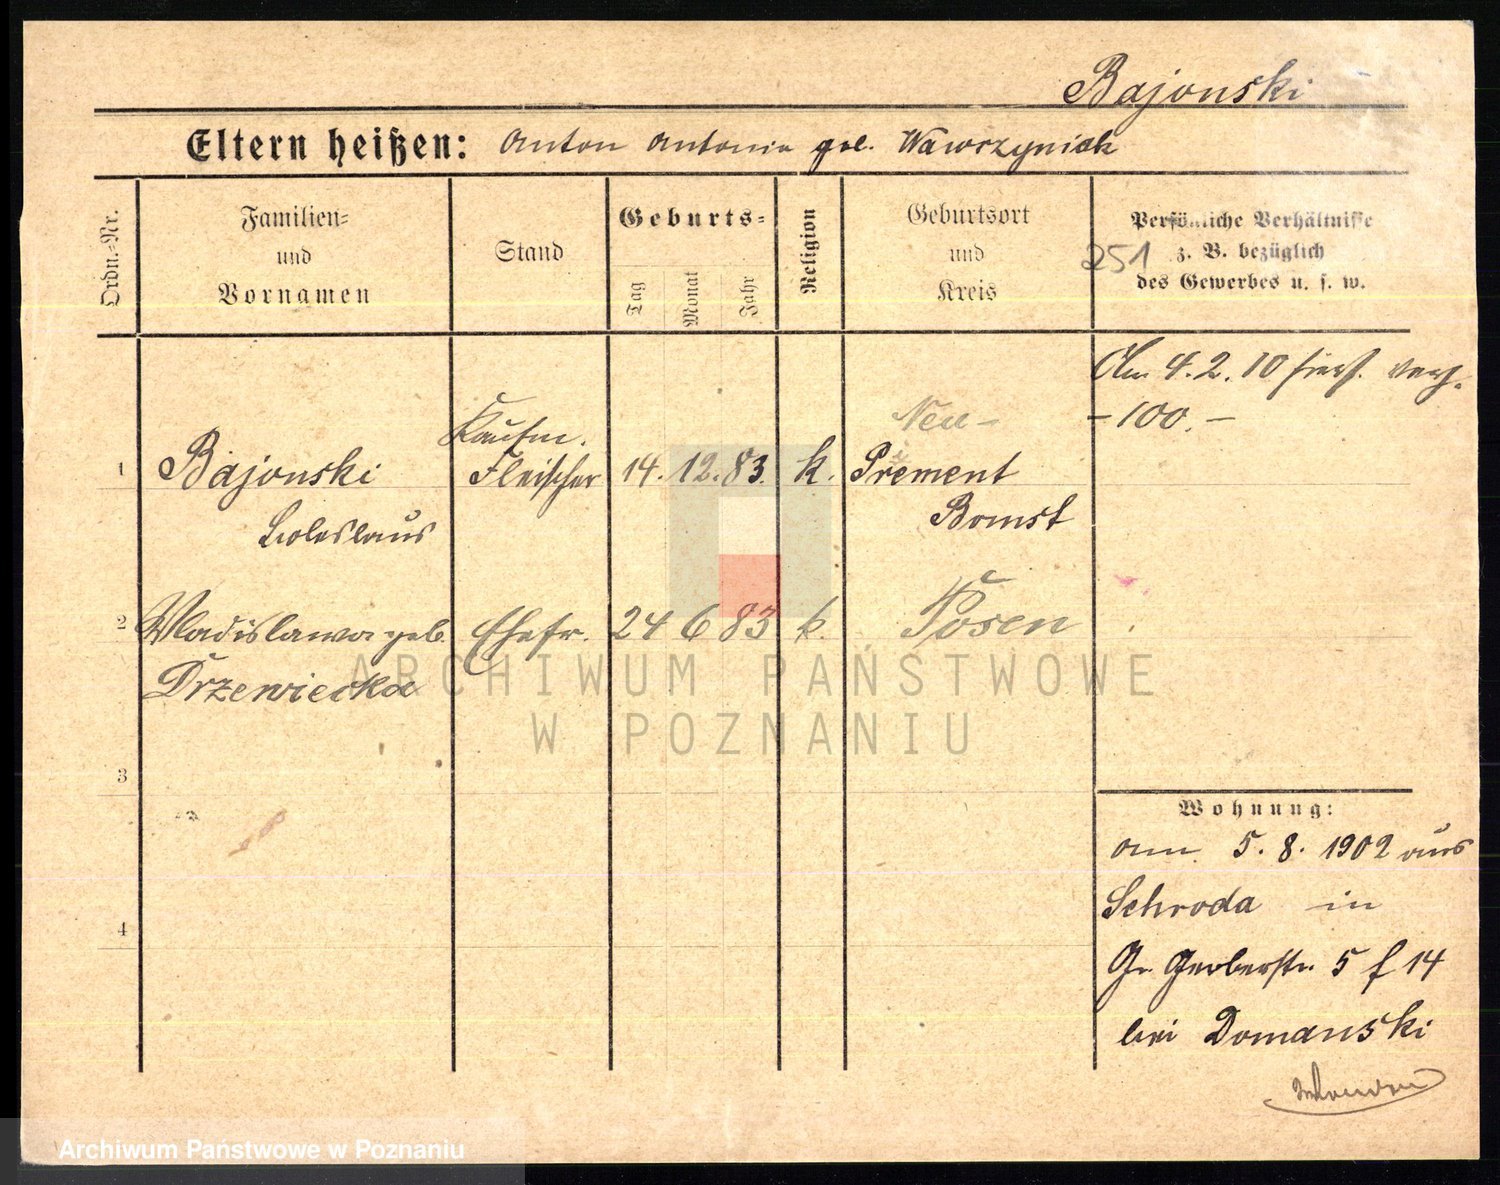 Bajonski
Eltern heißen: Anton Antonia geb. Wawrzyniak
Ordn.-Nr.
Familien=
und
Vornamen
Stand
Geburts=
Tag
Monat
Jahr
Religion
Geburtsort
und
Kreis
Persönliche Verhältnisse
z. B. bezüglich
des Gewerbes u. s. w.
251
Am 4. 2. 10
- 100. -
Kaufm.
Neu-
1 Bajonski Fleischer 14. 12. 83. k. Prement
Boleslaus Bomst
2 Wladislawa geb. Ehefr. 24 6 83 k. Posen
Drzewiecka
3
4
Wohnung:
am 5. 8. 1902 aus
Schroda in
Gr. Gerberstr. 5 f 14
bei Domanski
ARCHIWUM PAŃSTWOWE
W POZNANIU
Archiwum Państwowe w Poznaniu